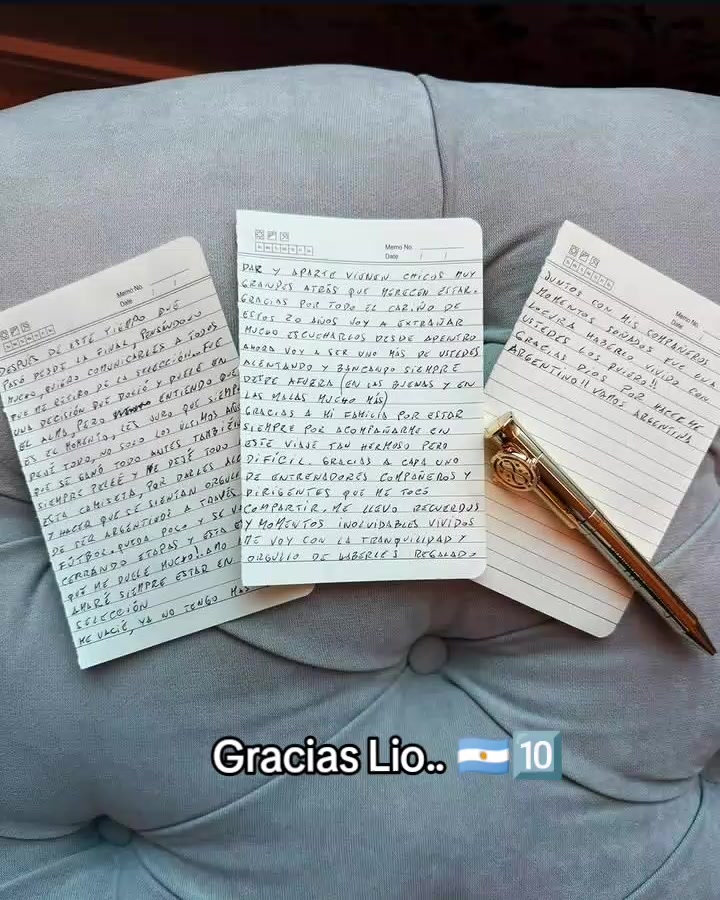 Memo No.
Date / /
DESPUES DE ESTE TIEMPO QUE
PASÓ DESDE LA FINAL, PENSÁNDOLO
MUCHO, QUIERO COMUNICARLES A TODOS
QUE ME RETIRO DE LA SELECCIÓN. FUE
UNA DECISIÓN QUE DOLIÓ Y DUELE EN
EL ALMA, PERO ENTIENDO QUE
ES EL MOMENTO. LES JURO QUE SIEMPRE
DEJÉ TODO, NO SOLO LOS ÚLTIMOS AÑOS
QUE SE GANÓ TODO ANTES TAMBIÉN
SIEMPRE PELEÉ Y ME DEJÉ TODO
ESTA CAMISETA, POR DARLES ALE
Y HACER QUE SE SIENTAN ORGULL
DE SER ARGENTINOS A TRAVÉS
FÚTBOL. QUEDA POCO Y SE VA
CERRANDO ETAPAS Y ESTA E
QUE ME DUELE MUCHO. AMO
AMARÉ SIEMPRE ESTAR EN
SELECCIÓN
ME VACIÉ, YA NO TENGO MAS
Memo No.
Date / /
DAR Y APARTE VIENEN CHICOS MUY
GRANDES ATRÁS QUE MERECEN ESTAR.
GRACIAS POR TODO EL CARIÑO DE
ESTOS 20 AÑOS VOY A EXTRAÑAR
MUCHO ESCUCHARLOS DESDE ADENTRO
AHORA VOY A SER UNO MÁS DE USTEDES
ALENTANDO Y BANCANDO SIEMPRE
DESDE AFUERA (EN LAS BUENAS Y EN
LAS MALAS MUCHO MÁS)
GRACIAS A MI FAMILIA POR ESTAR
SIEMPRE POR ACOMPAÑARME EN
ESTE VIAJE TAN HERMOSO PERO
DIFÍCIL. GRACIAS A CADA UNO
DE ENTRENADORES COMPAÑEROS Y
DIRIGENTES QUE ME TOCÓ
COMPARTIR. ME LLEVO RECUERDOS
Y MOMENTOS INOLVIDABLES VIVIDOS
ME VOY CON LA TRANQUILIDAD Y
ORGULLO DE HABERLES REGALADO
Memo No.
Date
JUNTOS CON MIS COMPAÑEROS
MOMENTOS SOÑADOS FUE UNA
LOCURA HABERLO VIVIDO CON
USTEDES LOS QUIERO!!
GRACIAS DIOS POR HACERME
ARGENTINO!! VAMOS ARGENTINA
Gracias Lio.. 🇦🇷🔟